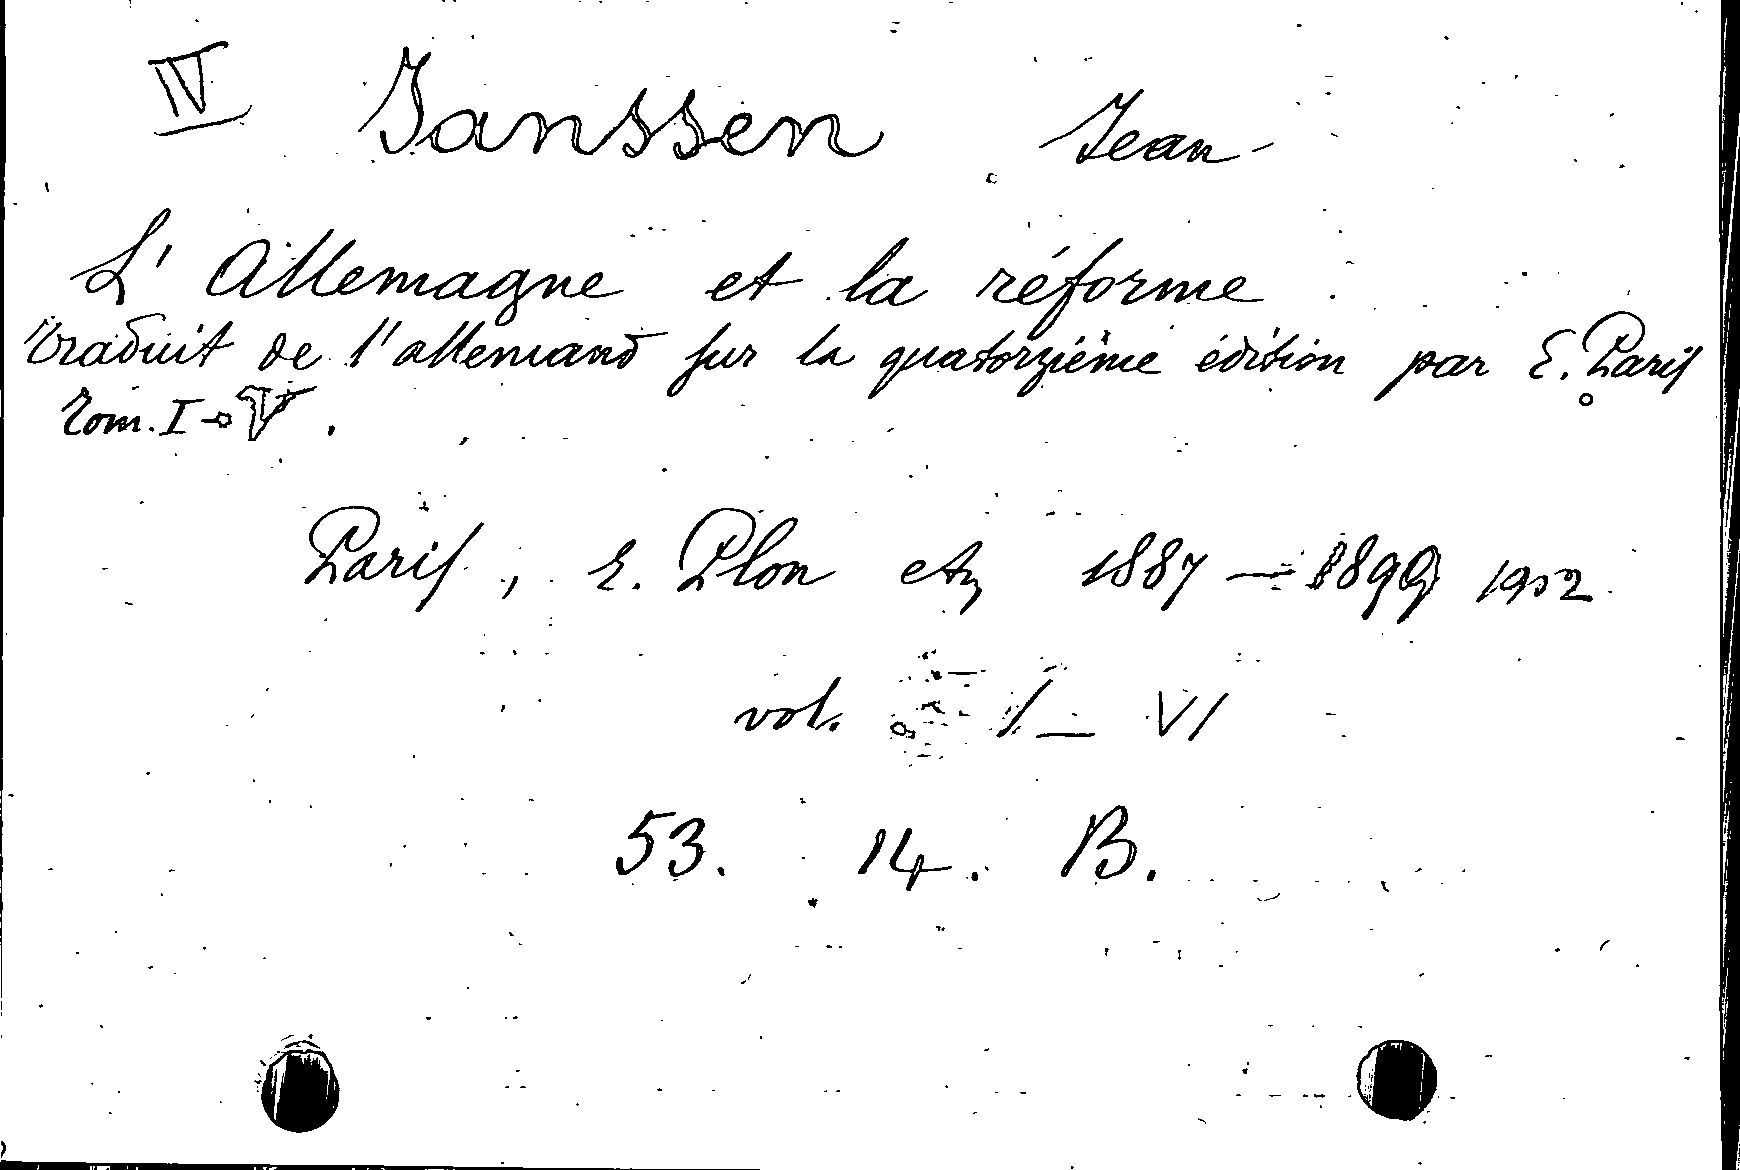 IV Janssen Jean
L' Allemagne et la réforme
traduit de l'allemand sur la quatorzième édition par E. Paris
Tom. I - V.
Paris, E. Plon etc 1887 — 1899 1902
vol. I — VI
53. 14. B.